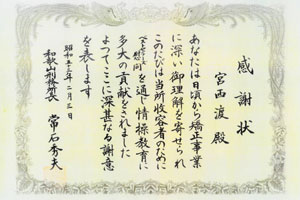 感謝状
宮西渡殿
あなたは日頃から矯正事業
に深い御理解を寄せられ
このたびは当所収容者のために
慰問を通じ情操教育に
多大の貢献をされました
よってここに深甚なる謝意
を表します
昭和五三年二月三日
和歌山刑務所長 常石秀夫